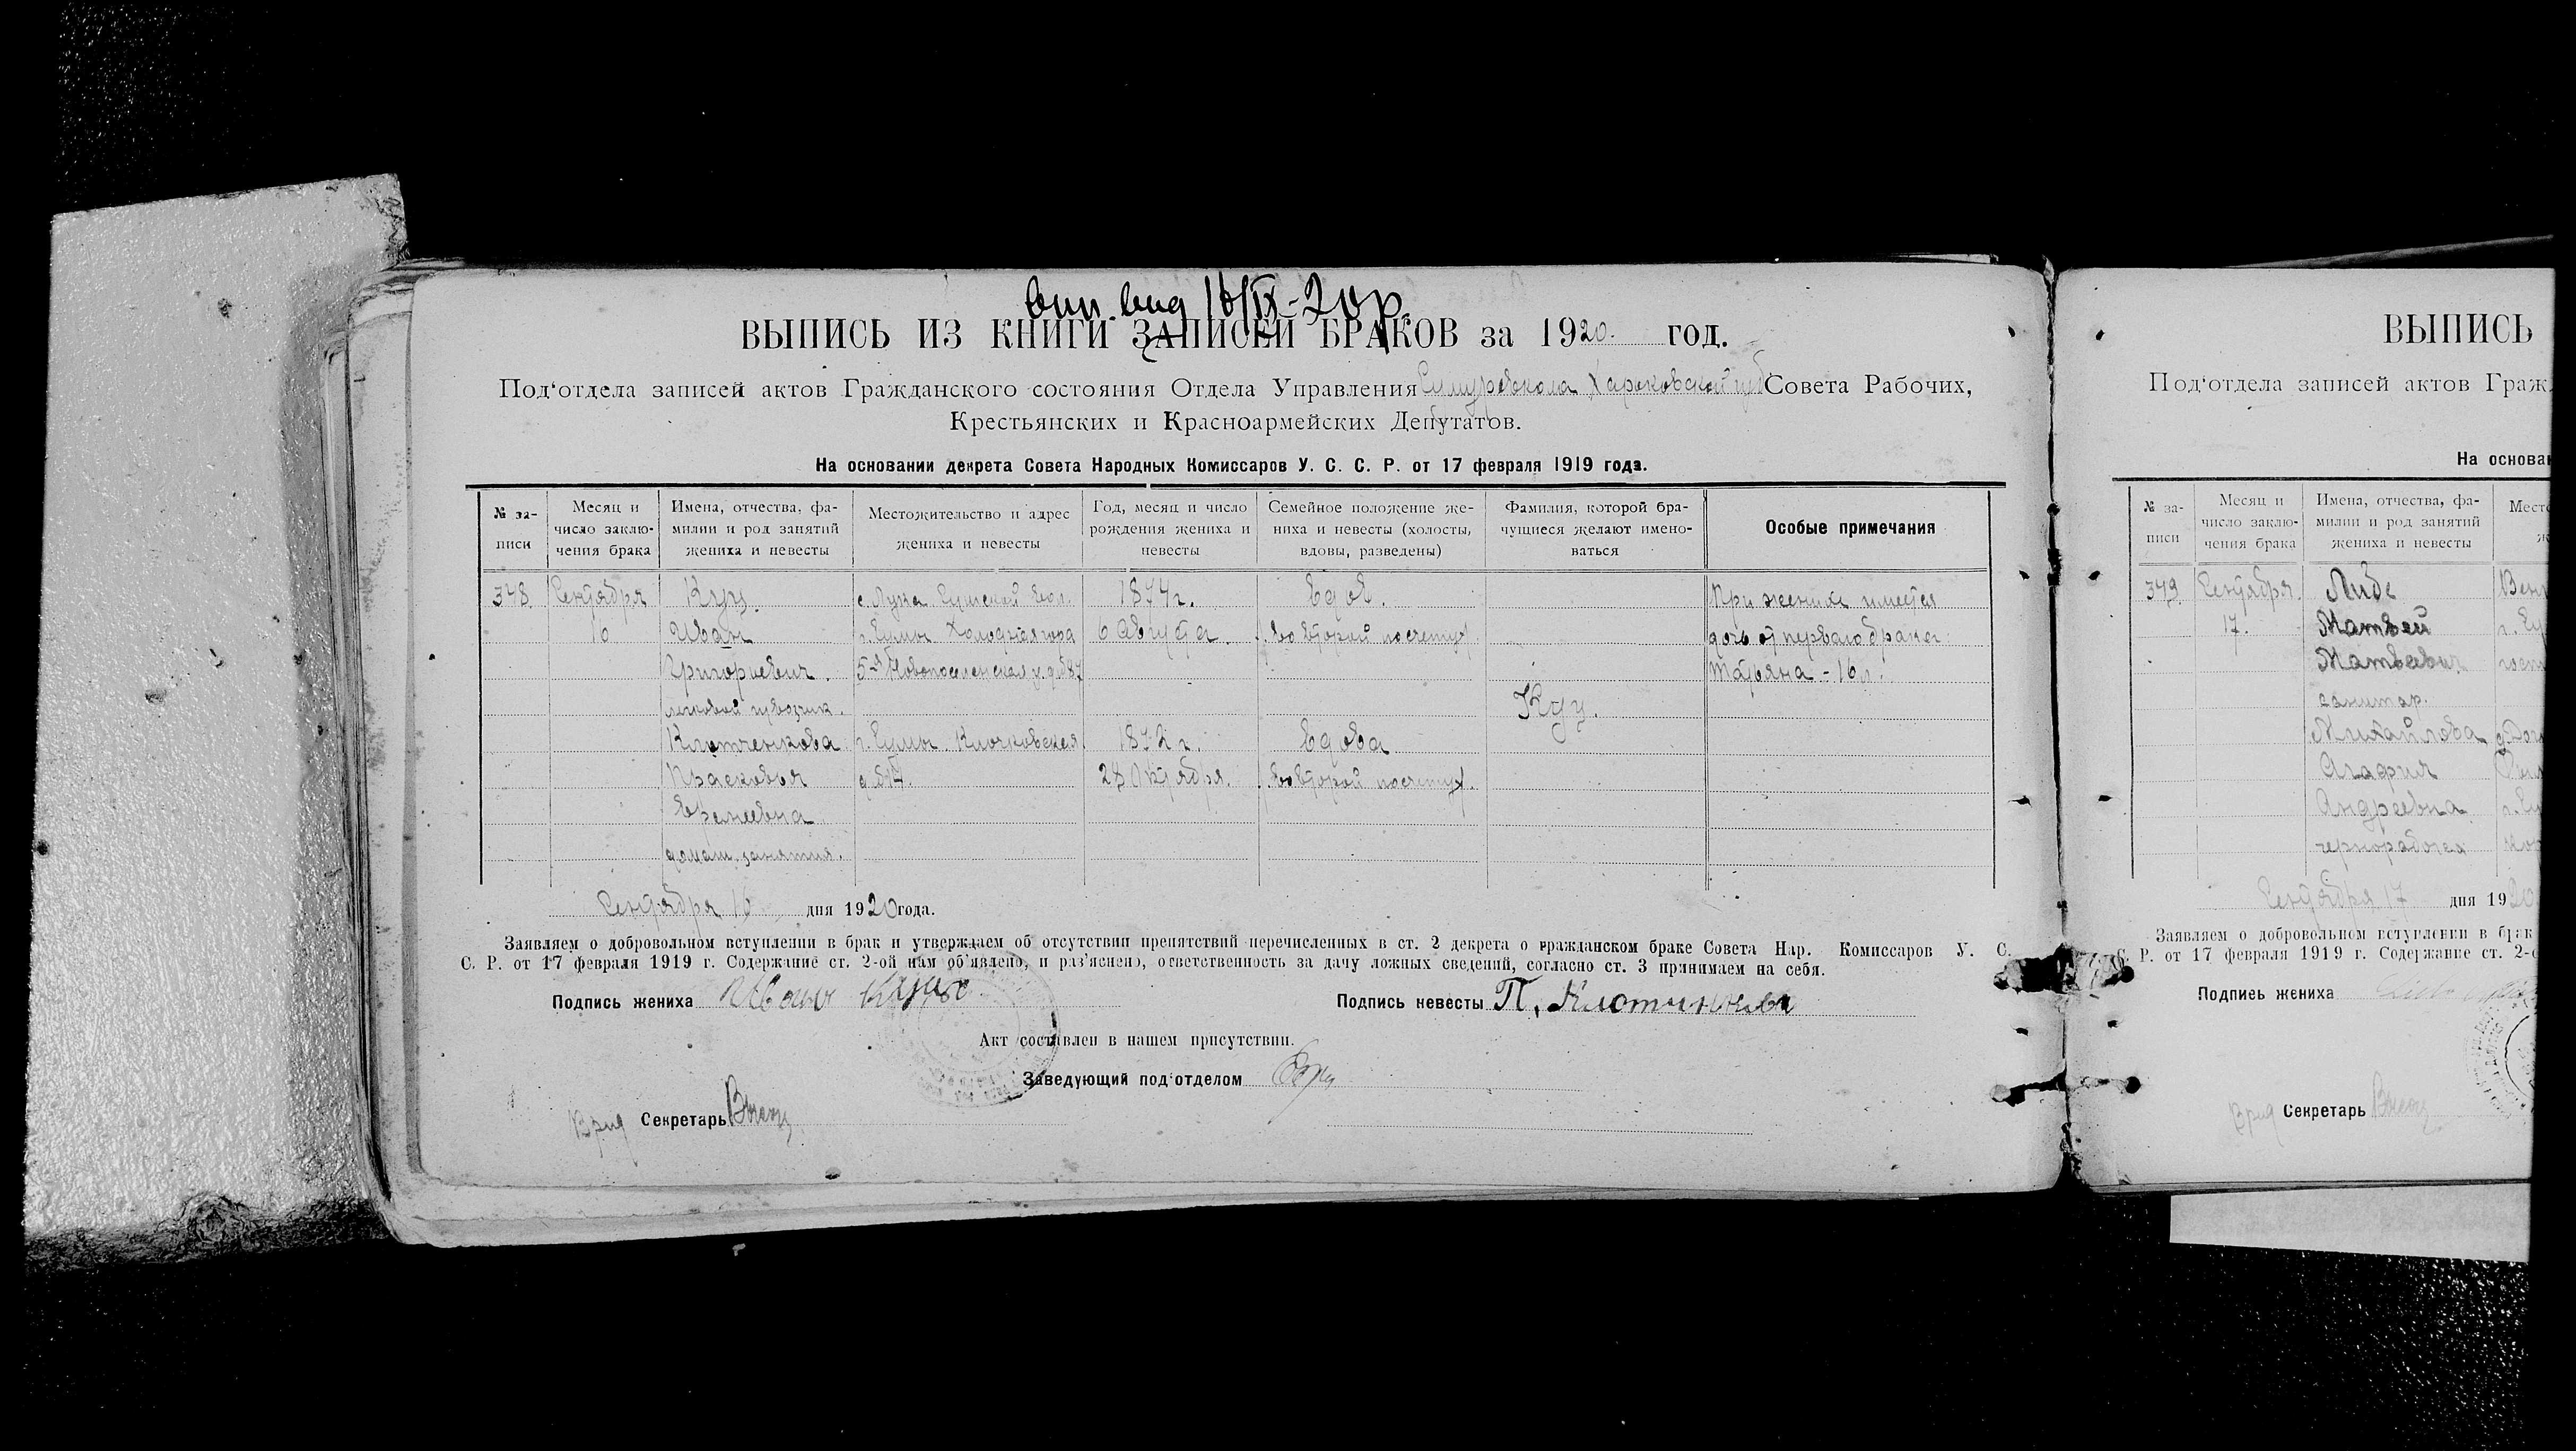 вып. выд 16/IX-20 р.
ВЫПИСЬ ИЗ КНИГИ ЗАПИСЕЙ БРАКОВ за 1920. год.
Под‘отдела записей актов Гражданского состояния Отдела Управления Харьковской губ Совета Рабочих,
Крестьянских и Красноармейских Депутатов.
На основании декрета Совета Народных Комиссаров У. С. С. Р. от 17 февраля 1919 года.
№ за-писи
Месяц и число заклю-чения брака
Имена, отчества, фа-милии и род занятий жениха и невесты
Местожительство и адрес жениха и невесты
Год, месяц и число рождения жениха и невесты
Семейное положение же-ниха и невесты (холосты, вдовы, разведены)
Фамилия, которой бра-чущиеся желают имено-ваться
Особые примечания
378. Сентября Куц. с. Лука Сумской вол. 1874 г. Вдов. При женихе имеется
16 Иван г. Сумы Холодная гора 6 Августа. /во второй поступ/ дочь от первого брака:
Григорьевич. 5-я Новопоселенская у. д. № 87 Татьяна - 16 л.
легковой извозчик. Куц.
г. Сумы. Клочковская 1872 г. Вдова
Прасковья д. № 28 Октября. /во второй поступ/.
домаш. занятия.
Сентября 16 дня 1920 года.
Заявляем о добровольном вступлении в брак и утверждаем об отсутствии препятствий перечисленных в ст. 2 декрета о гражданском браке Совета Нар. Комиссаров У. С.
С. Р. от 17 февраля 1919 г. Содержание ст. 2-ой нам об‘явлено, и раз‘яснено, ответственность за дачу ложных сведений, согласно ст. 3 принимаем на себя.
Подпись жениха Иван
Подпись невесты П.
Акт составлен в нашем присутствии.
Заведующий под‘отделом
Врид Секретарь
ВЫПИСЬ
Под‘отдела записей актов Граж
На основан
№ за-писи
Месяц и число заклю-чения брака
Имена, отчества, фа-милии и род занятий жениха и невесты
Мест
379 Сентября Либе
17. Матвей г. Су
Матвеевич
санитар.
Михайлова
Агафия
Андреевна г. Су
чернорабочая
Сентября 17 дня 1920
Заявляем о добровольном вступлении в брак
С. Р. от 17 февраля 1919 г. Содержание ст. 2-о
Подпись жениха
Врид Секретарь